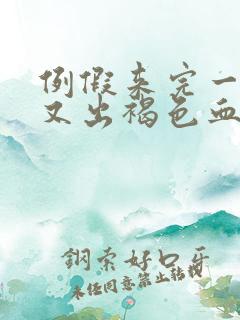 例假来完一
又出褐色血
钢索好口牙
未经同意禁止转载